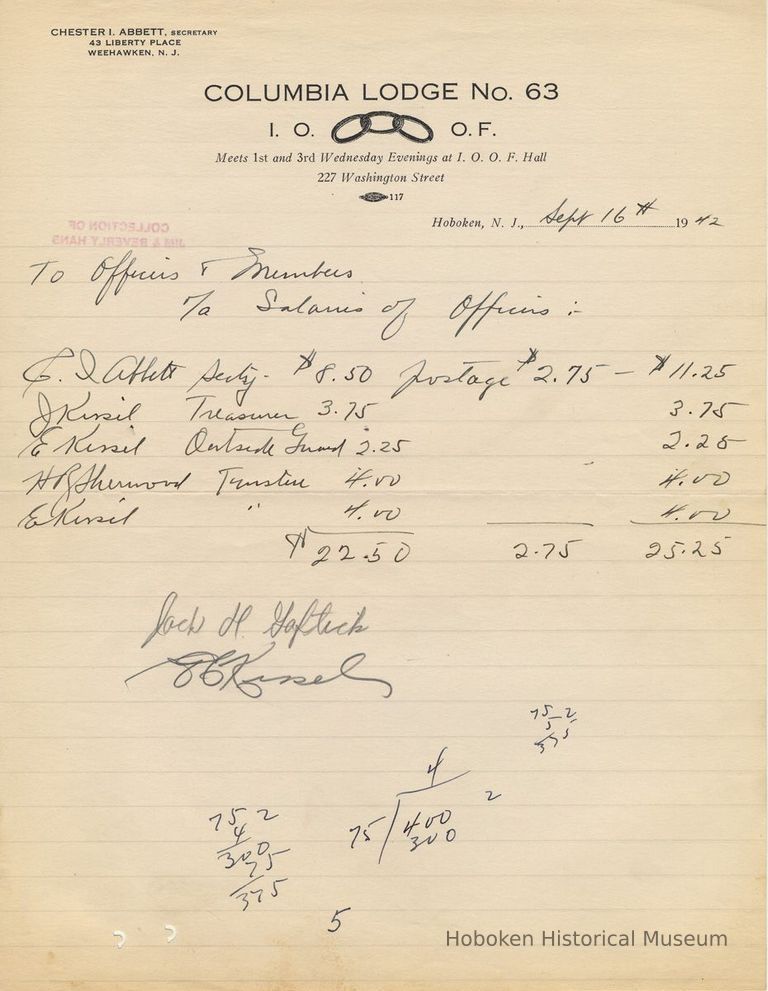 CHESTER I. ABBETT, SECRETARY
43 LIBERTY PLACE
WEEHAWKEN, N. J.
COLUMBIA LODGE No. 63
I. O. O. F.
Meets 1st and 3rd Wednesday Evenings at I. O. O. F. Hall
227 Washington Street
117
Hoboken, N. J., Sept 16th 1942
COLLECTION OF
JIM & BEVERLY HANS
To Officers & Members
To Salaries of Officers :-
C. I. Abbett Secty - $8.50 postage $2.75 - $11.25
J Kissil Treasurer 3.75 3.75
E Kissil Outside Guard 2.25 2.25
H B Sherwood Trustee 4.00 4.00
E Kissil " 4.00 4.00
$22.50 2.75 25.25
Jack H.
E C Kissel
75 2
5
375
4
75 2 75 400 2
4 300
300
75
375
5
Hoboken Historical Museum